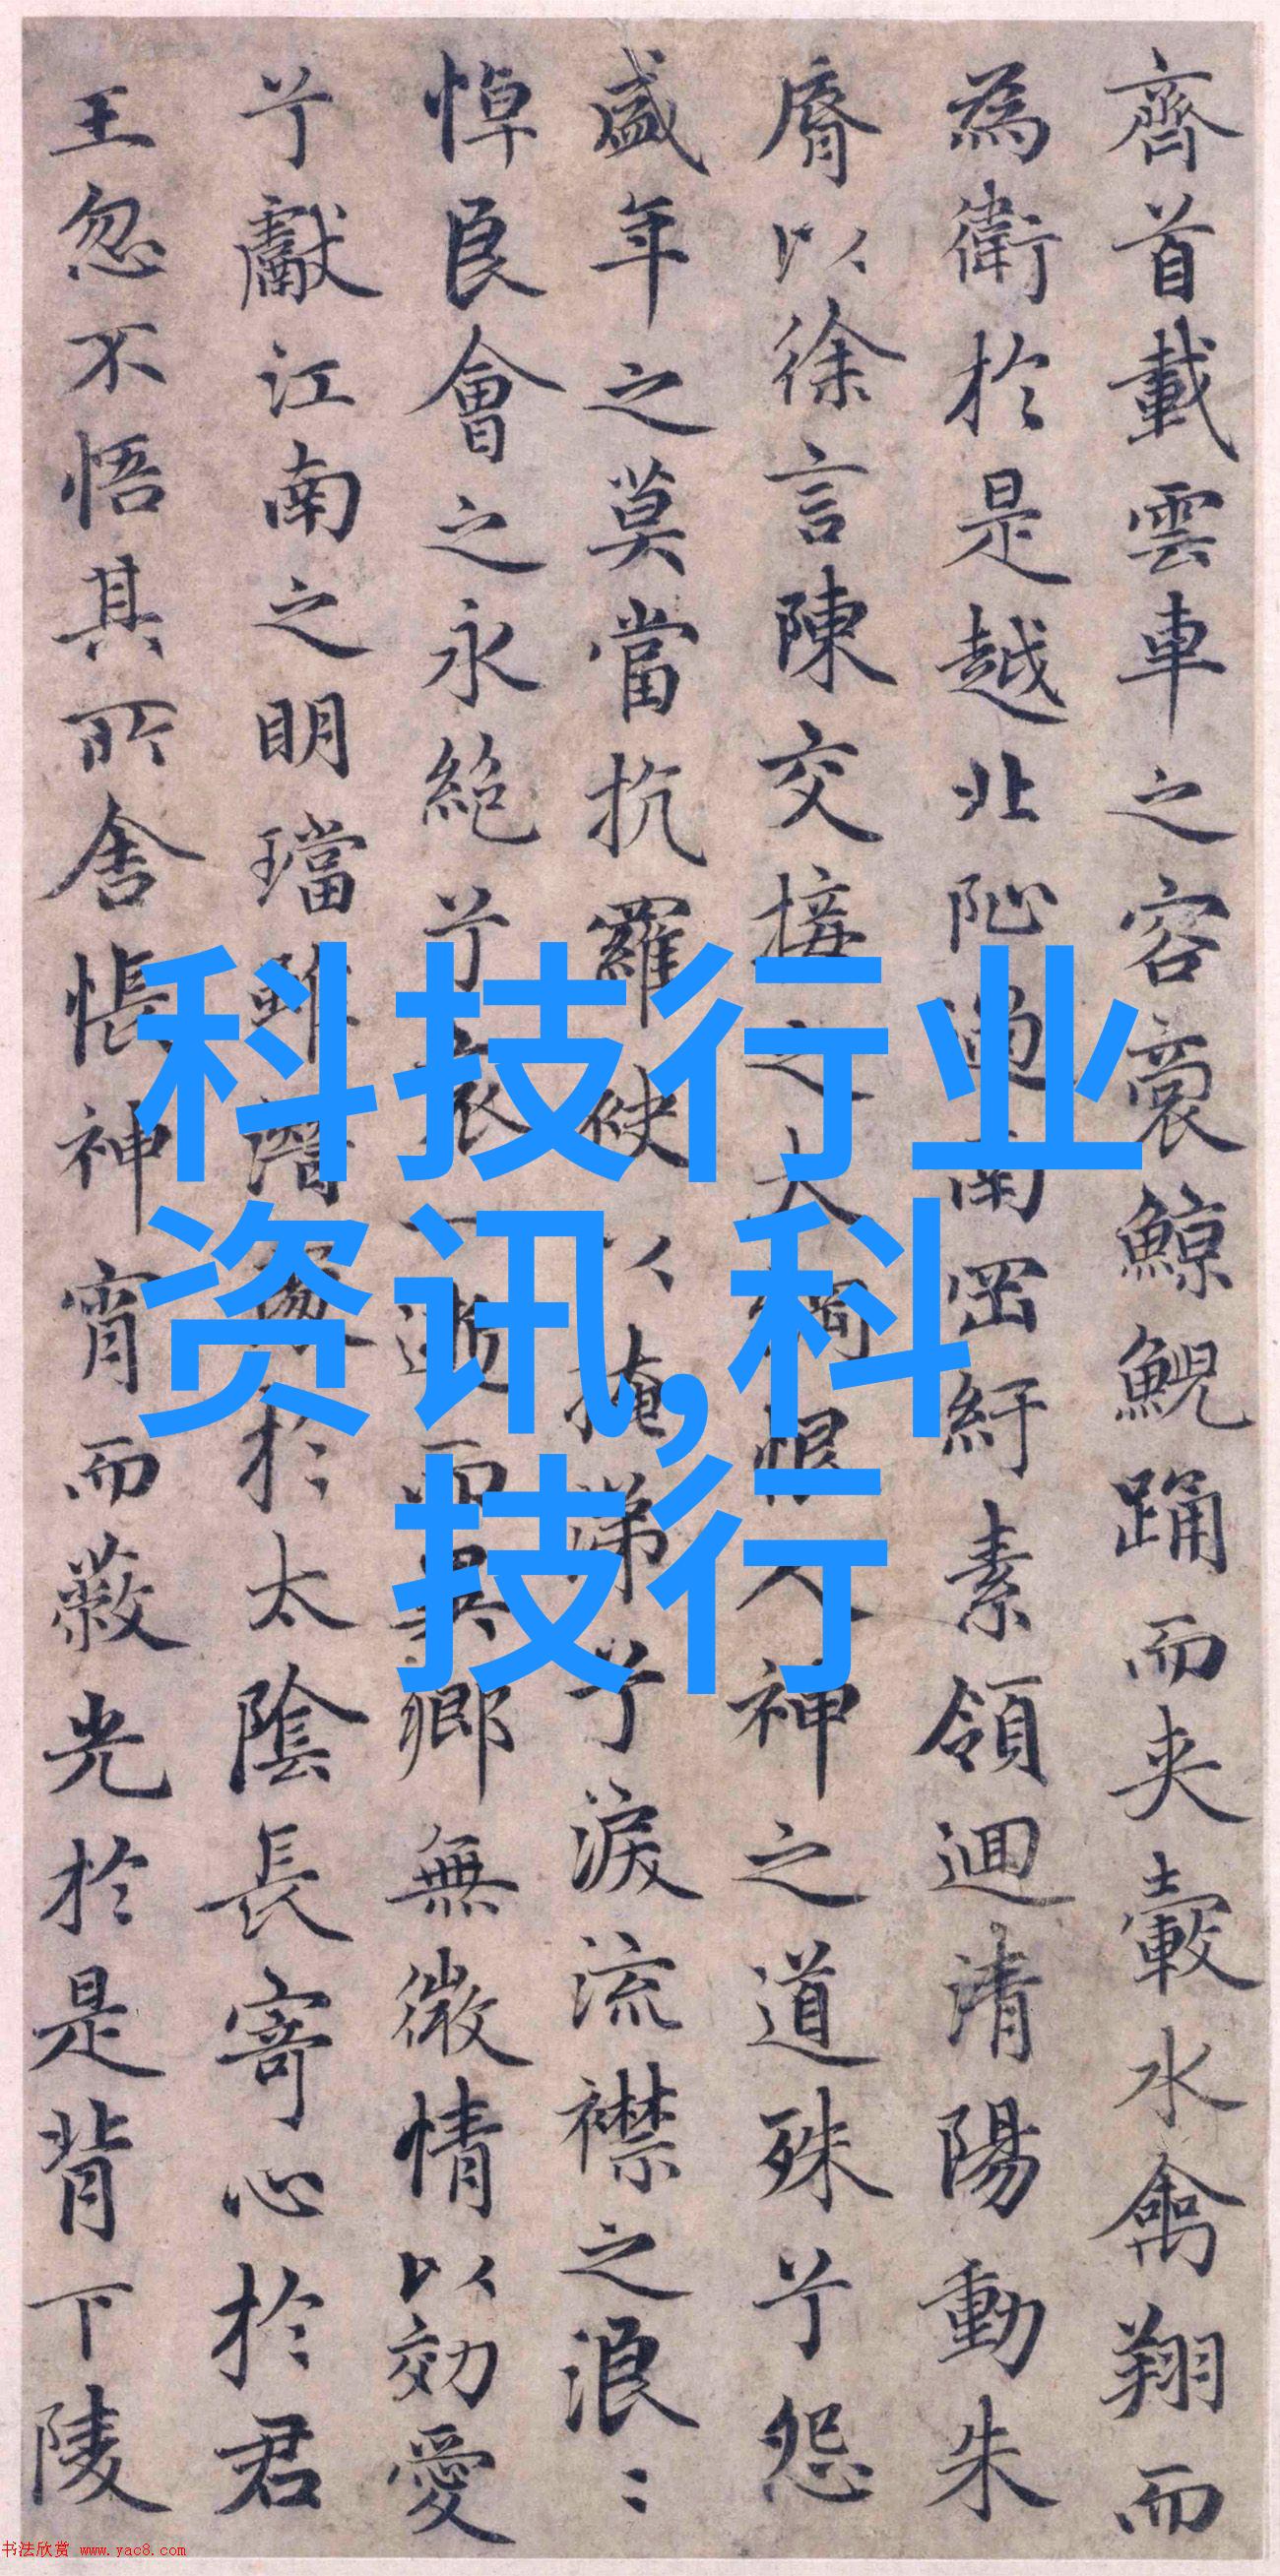 科技行业
资讯,科
技行
齊首載雲車之容裔鯨鯢踊而夾轂水禽翔而
為衛於是越北阯過南岡紆素領迴清陽動朱
脣以徐言陳交接之大綱恨人神之道殊兮怨
盛年之莫當抗羅袂以掩涕兮淚流襟之浪〻
悼良會之永絕兮哀一逝而異鄉無微情以効愛
兮獻江南之明璫雖潛處於太陰長寄心於君
王忽不悟其所舍悵神宵而蔽光於是背下陵
书法欣赏 www.yac8.com